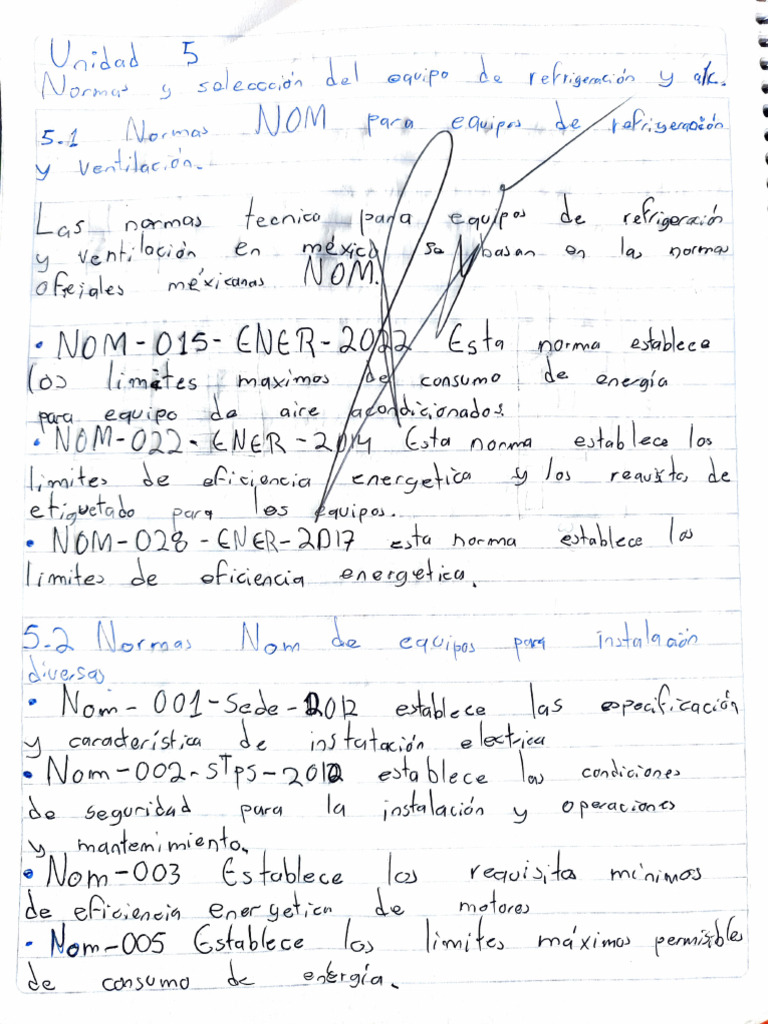 Unidad 5
Normas y seleccción del equipo de refrigeración y a/c.
5.1 Normas NOM para equipos de refrigeración
y ventilación.
Las normas tecnico para equipos de refrigeración
y ventilación en méxico se basan en la norma
oficiales méxicanas NOM.
• NOM-015-ENER-2022 Esta norma establece
los limites maximos de consumo de energía
para equipo de aire acondicionados.
• NOM-022-ENER-2014 Esta norma establece los
limites de eficiencia energetica y los requisitos de
etiquetado para los equipos.
• NOM-028-ENER-2017 esta norma establece los
limites de eficiencia energetica.
5.2 Normas Nom de equipos para instalación
diversas
• Nom-001-Sede-2012 establece las especificación
y característica de instatación electrica
• Nom-002-STPS-2012 establece las condiciones
de seguridad para la instalación y operaciones
y mantenimiento.
• Nom-003 Establece los requisitos mínimos
de eficiencia energetica de motores
• Nom-005 Establece los limites máximos permisibles
de consumo de enérgía.